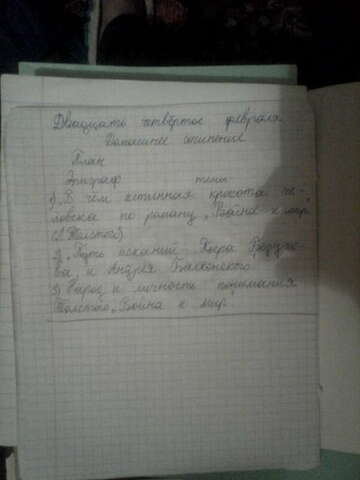 Двадцать четвёртое февраля
Домашнее сочинение
План
Эпиграф темы
1) В чем истинная красота че-
ловека по роману „Война и мир
(Л. Толстой)
2) Путь исканий Пьера Безухо-
ва и Андрея Болконского
3) Народ и личность понимания
Толстого „Война и мир.